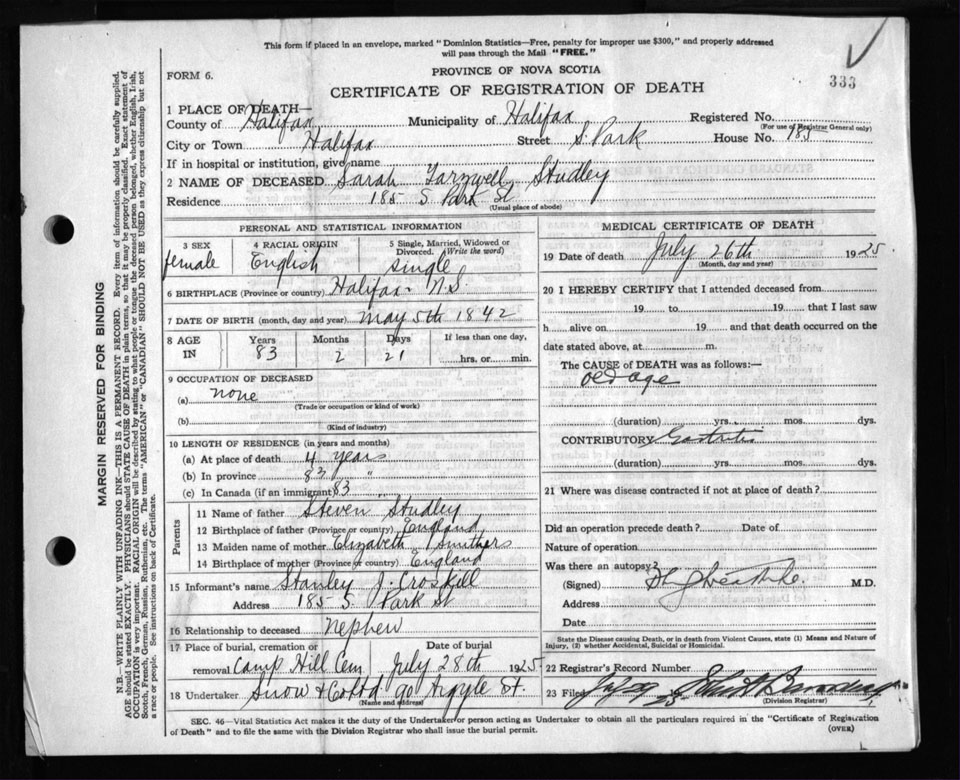 This form if placed in an envelope, marked "Dominion Statistics—Free, penalty for improper use $300," and properly addressed
will pass through the Mail "FREE."
FORM 6.
PROVINCE OF NOVA SCOTIA
333
CERTIFICATE OF REGISTRATION OF DEATH
1 PLACE OF DEATH—
County of Halifax Municipality of Halifax Registered No.
(For use of Registrar General only)
City or Town Halifax Street S. Park House No. 185
If in hospital or institution, give name
2 NAME OF DECEASED Sarah Studley
Residence 185 S Park St
(Usual place of abode)
PERSONAL AND STATISTICAL INFORMATION
3 SEX 4 RACIAL ORIGIN 5 Single, Married, Widowed or
Divorced. (Write the word)
female English single
6 BIRTHPLACE (Province or country) Halifax N.S.
7 DATE OF BIRTH (month, day and year) May 5th 1842
8 AGE IN Years Months Days If less than one day,
83 2 21 hrs. or min.
9 OCCUPATION OF DECEASED
(a) none
(Trade or occupation or kind of work)
(b)
(Kind of industry)
10 LENGTH OF RESIDENCE (in years and months)
(a) At place of death 4 years
(b) In province 83 "
(c) In Canada (if an immigrant) 83 "
Parents
11 Name of father Steven Studley
12 Birthplace of father (Province or country) England
13 Maiden name of mother Elizabeth Smithers
14 Birthplace of mother (Province or country) England
15 Informant's name Stanley J. Croskill
Address 185 S. Park St
16 Relationship to deceased nephew
17 Place of burial, cremation or Date of burial
removal Camp Hill Cem July 28th 1925
18 Undertaker Snow & Co Ltd 90 Argyle St.
(Name and address)
MEDICAL CERTIFICATE OF DEATH
19 Date of death July 26th 1925
(Month, day and year)
20 I HEREBY CERTIFY that I attended deceased from
19 to 19 that I last saw
h alive on 19 and that death occurred on the
date stated above, at m.
The CAUSE of DEATH was as follows:—
old age
(duration) yrs. mos. dys.
CONTRIBUTORY Gastritis
(duration) yrs. mos. dys.
21 Where was disease contracted if not at place of death?
Did an operation precede death? Date of
Nature of operation
Was there an autopsy?
(Signed) M.D.
Address
Date
State the Disease causing Death, or in death from Violent Causes, state (1) Means and Nature of
Injury, (2) whether Accidental, Suicidal or Homicidal.
22 Registrar's Record Number
23 Filed July 29 25
(Division Registrar)
SEC. 46—Vital Statistics Act makes it the duty of the Undertaker or person acting as Undertaker to obtain all the particulars required in the "Certificate of Registration
of Death" and to file the same with the Division Registrar who shall issue the burial permit.
(OVER)
MARGIN RESERVED FOR BINDING
N.B.—WRITE PLAINLY WITH UNFADING INK—THIS IS A PERMANENT RECORD. Every item of information should be carefully supplied.
AGE should be stated EXACTLY. PHYSICIANS should STATE CAUSE OF DEATH in plain terms, so that it may be properly classified. Exact statement of
OCCUPATION is very important. RACIAL ORIGIN will be described by stating to what people or tongue the deceased person belonged, whether English, Irish,
Scotch, French, German, Russian, Ruthenian, etc. The terms "AMERICAN" or "CANADIAN" SHOULD NOT BE USED as they express citizenship but not
a race or people. See instructions on back of Certificate.